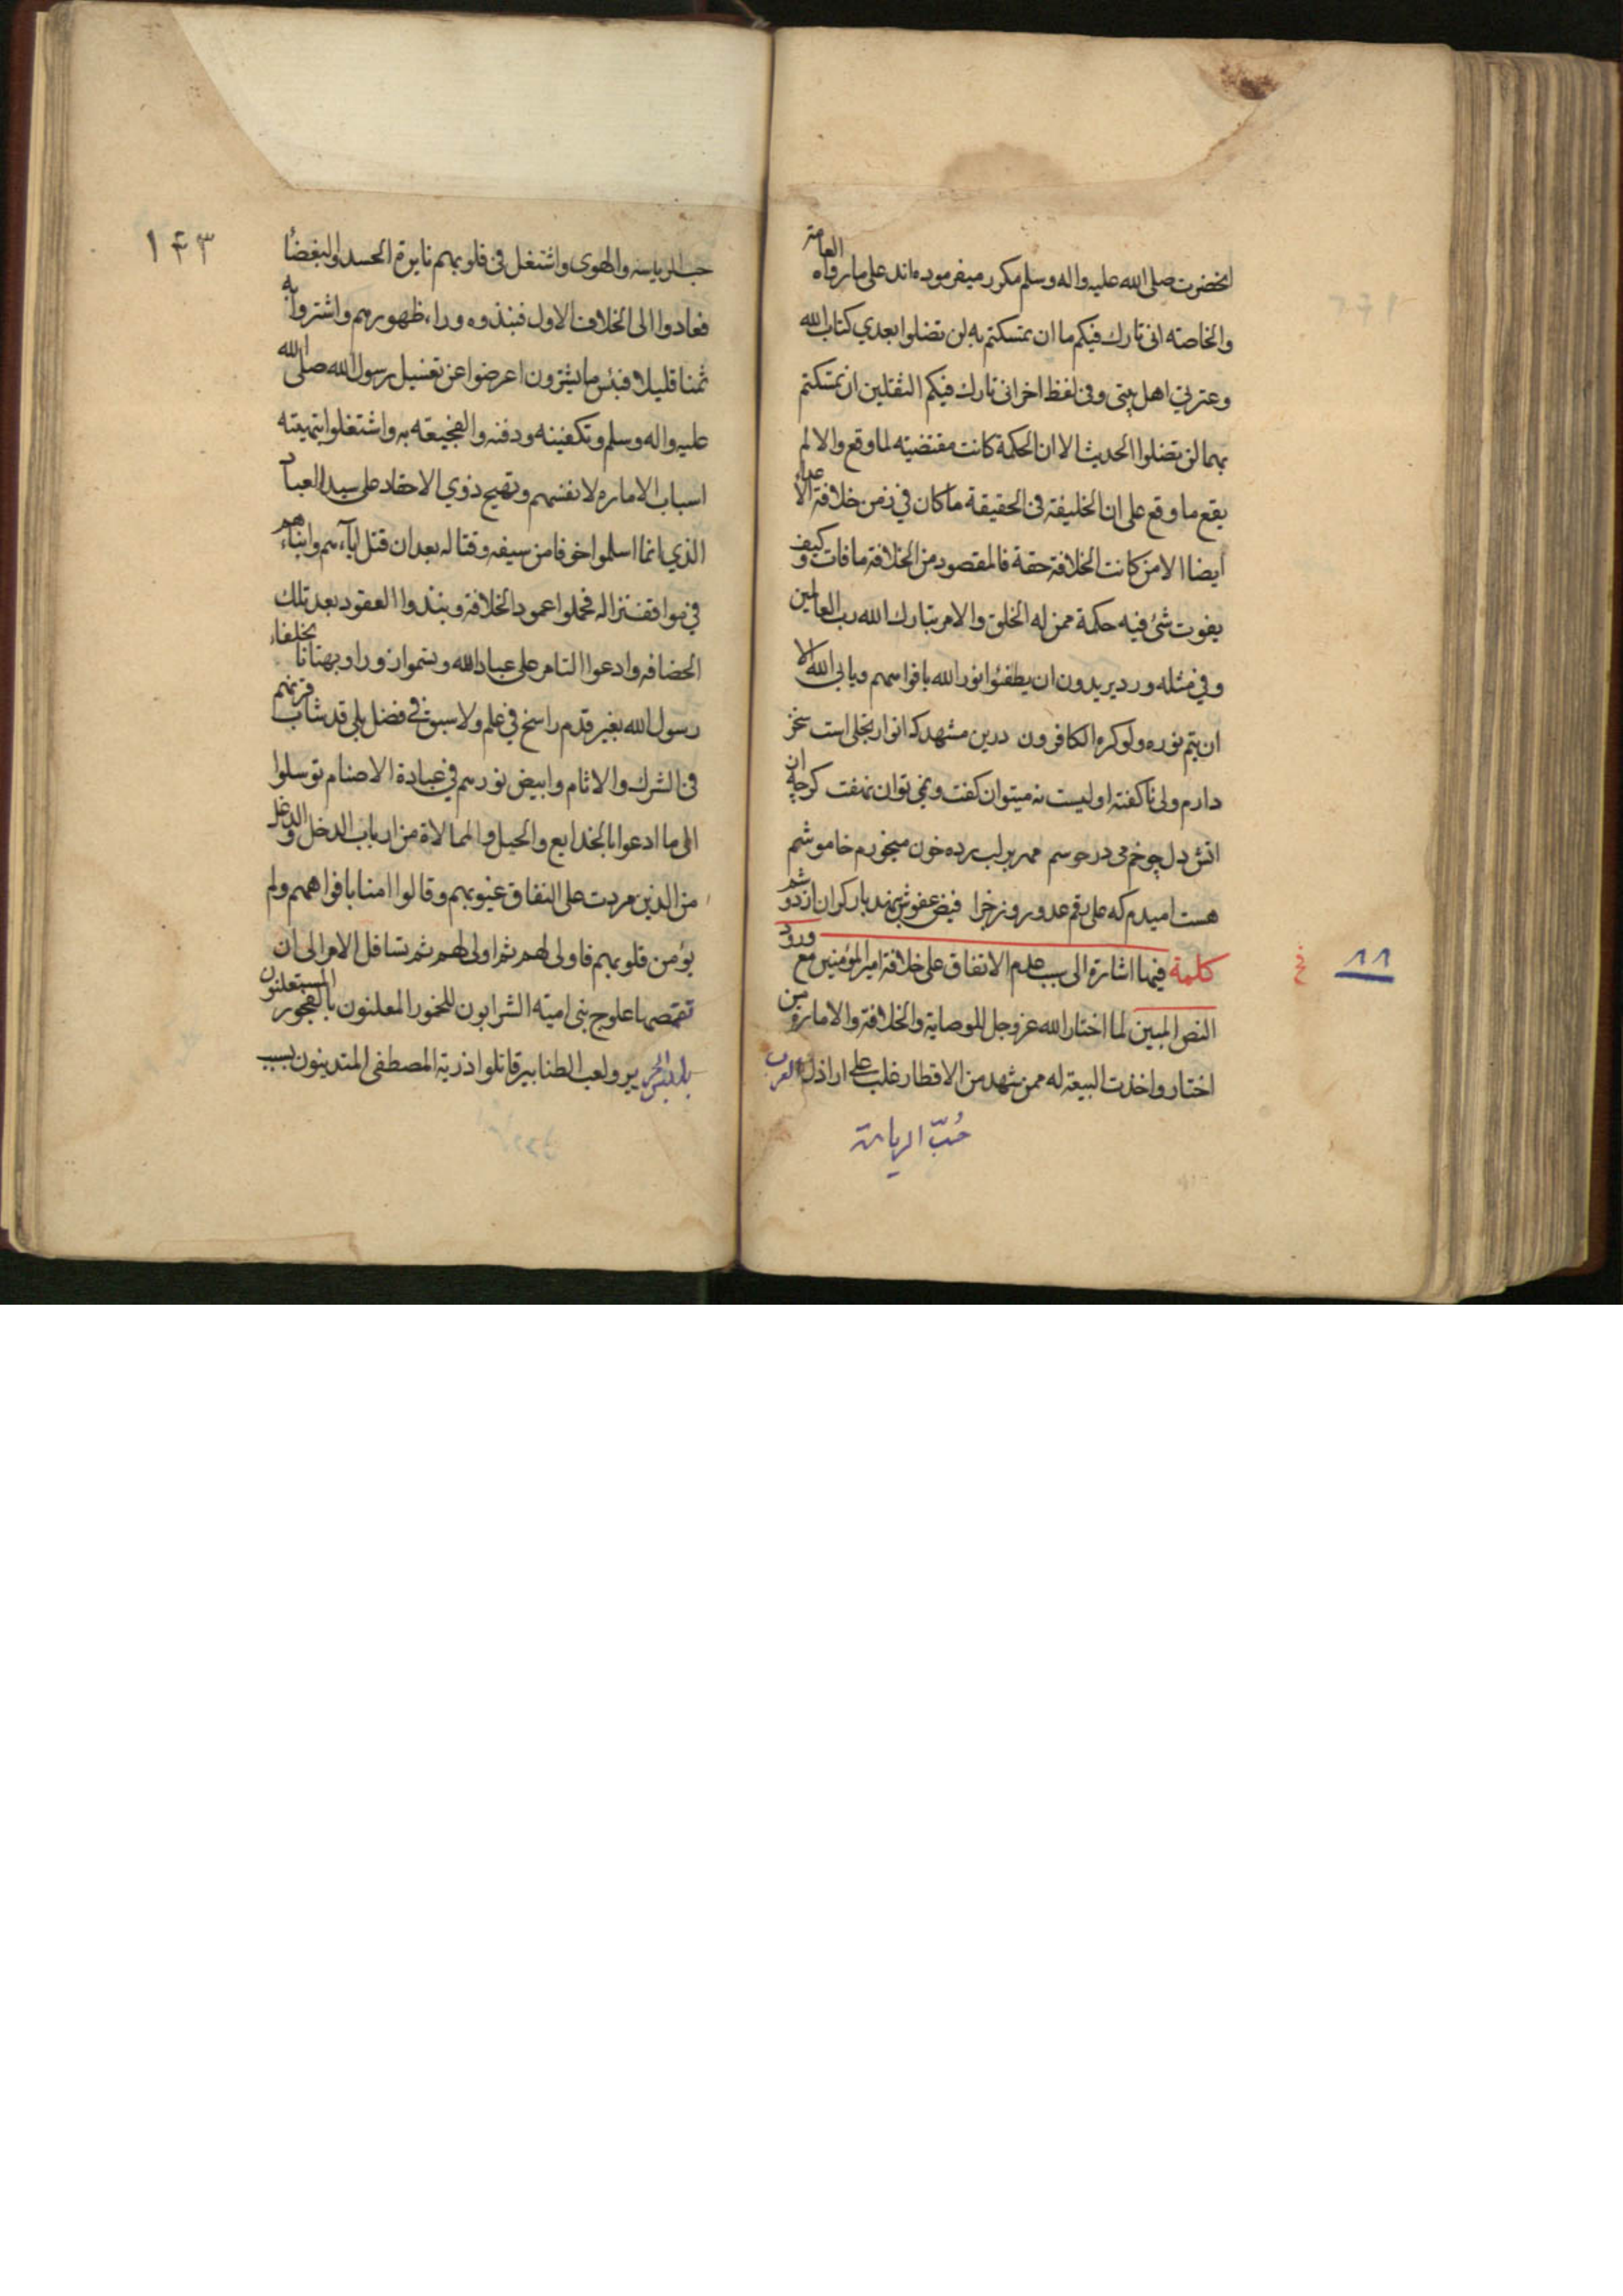 انحضرت صلى الله عليه واله وسلم مكرر ميفرموده اند على ما رواه العامة
والخاصه انى تارك فيكم ما ان تمسكتم به لن تضلوا بعدي كتاب الله
وعترتي اهل بيتى وفى لفظ اخر انى تارك فيكم الثقلين ان تمسكتم
بهما لن تضلوا الحديث الا ان الحكمة كانت مقتضيته لما وقع والا لم
يقع ما وقع على ان الخليفة فى الحقيقة ما كان في زمن خلافة الاعداء
ايضا الا من كانت الخلافة حقه فالمقصود من الخلافة ما فات وكيف
يفوت شئ فيه حكمة ممن له الخلق والامر تبارك الله رب العالمين
وفي مثله ورد يريدون ان يطفئوا نور الله بافواههم ويابى الله الا
ان يتم نوره ولو كره الكافرون درين مشهد كه انوار تجلى است سخن
دارم ولى ناكفته اوليست نه ميتوان كفت ونمى توان نهفت كرچه ان
اتش دل چو خم مى در جوسم مهر بر لب زده خون ميخورم خاموشم
هست اميدم كه على رقم عدو روز جزا فيض عفوش ننهد بار كران از دوشم
كلمة فيها اشارة الى سبب عدم الاتفاق على خلافة امير المؤمنين مع ورود
النص المبين لما اختار الله عز وجل للوصاية والخلافة والامارة من
اختار واخذت البيعة له ممن شهد من الاقطار غلب على اراذل العرب
حُبّ الرياسة
١١
خ
١٤٣
حب الرياسه والهوى واشتغل فى قلوبهم نايرة الحسد والبغضا
فعادوا الى الخلاف الاول فنبذوه وراء ظهورهم واشتروا به
ثمنا قليلا فبئس ما يشترون اعرضوا عن تغسيل رسول الله صلى الله
عليه واله وسلم وتكفينه ودفنه والفجيعته به واشتغلوا بتهيئته
اسباب الاماره لانفسهم وتهيج ذوي الاحقاد على سيد العباد
الذي انما اسلموا خوفا من سيفه وقتاله بعد ان قتل اباءهم وابناءهم
في مواقف نزاله فحملوا عمود الخلافة ونبذوا العقود بعد تلك
الحضافه وادعوا التامر على عباد الله وتسموا زورا وبهتانا بخلفاء
رسول الله بغير قدم راسخ في علم ولا سبوق في فضل بلى قد شاب قرنهم
فى الشرك والاثام وابيض نورهم في عبادة الاصنام توسلوا
الى ما ادعوا بالخدايع والحيل والممالاة من ارباب الدخل والدغل
من الذين مردت على النفاق غيوبهم وقالوا امنا بافواههم ولم
يؤمن قلوبهم فاولى لهم ثم اولى لهم ثم تسافل الامر الى ان
تقمصها علوج بنى اميته الشرابون للخمور المعلنون بالفجور المستعلنون
بلبس الحرير ولعب الطنابير قاتلوا ذرية المصطفى المتدينون بسب